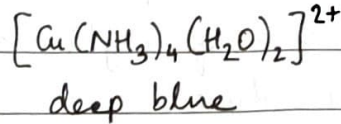 [Cu(NH₃)₄(H₂O)₂]²⁺
deep blue